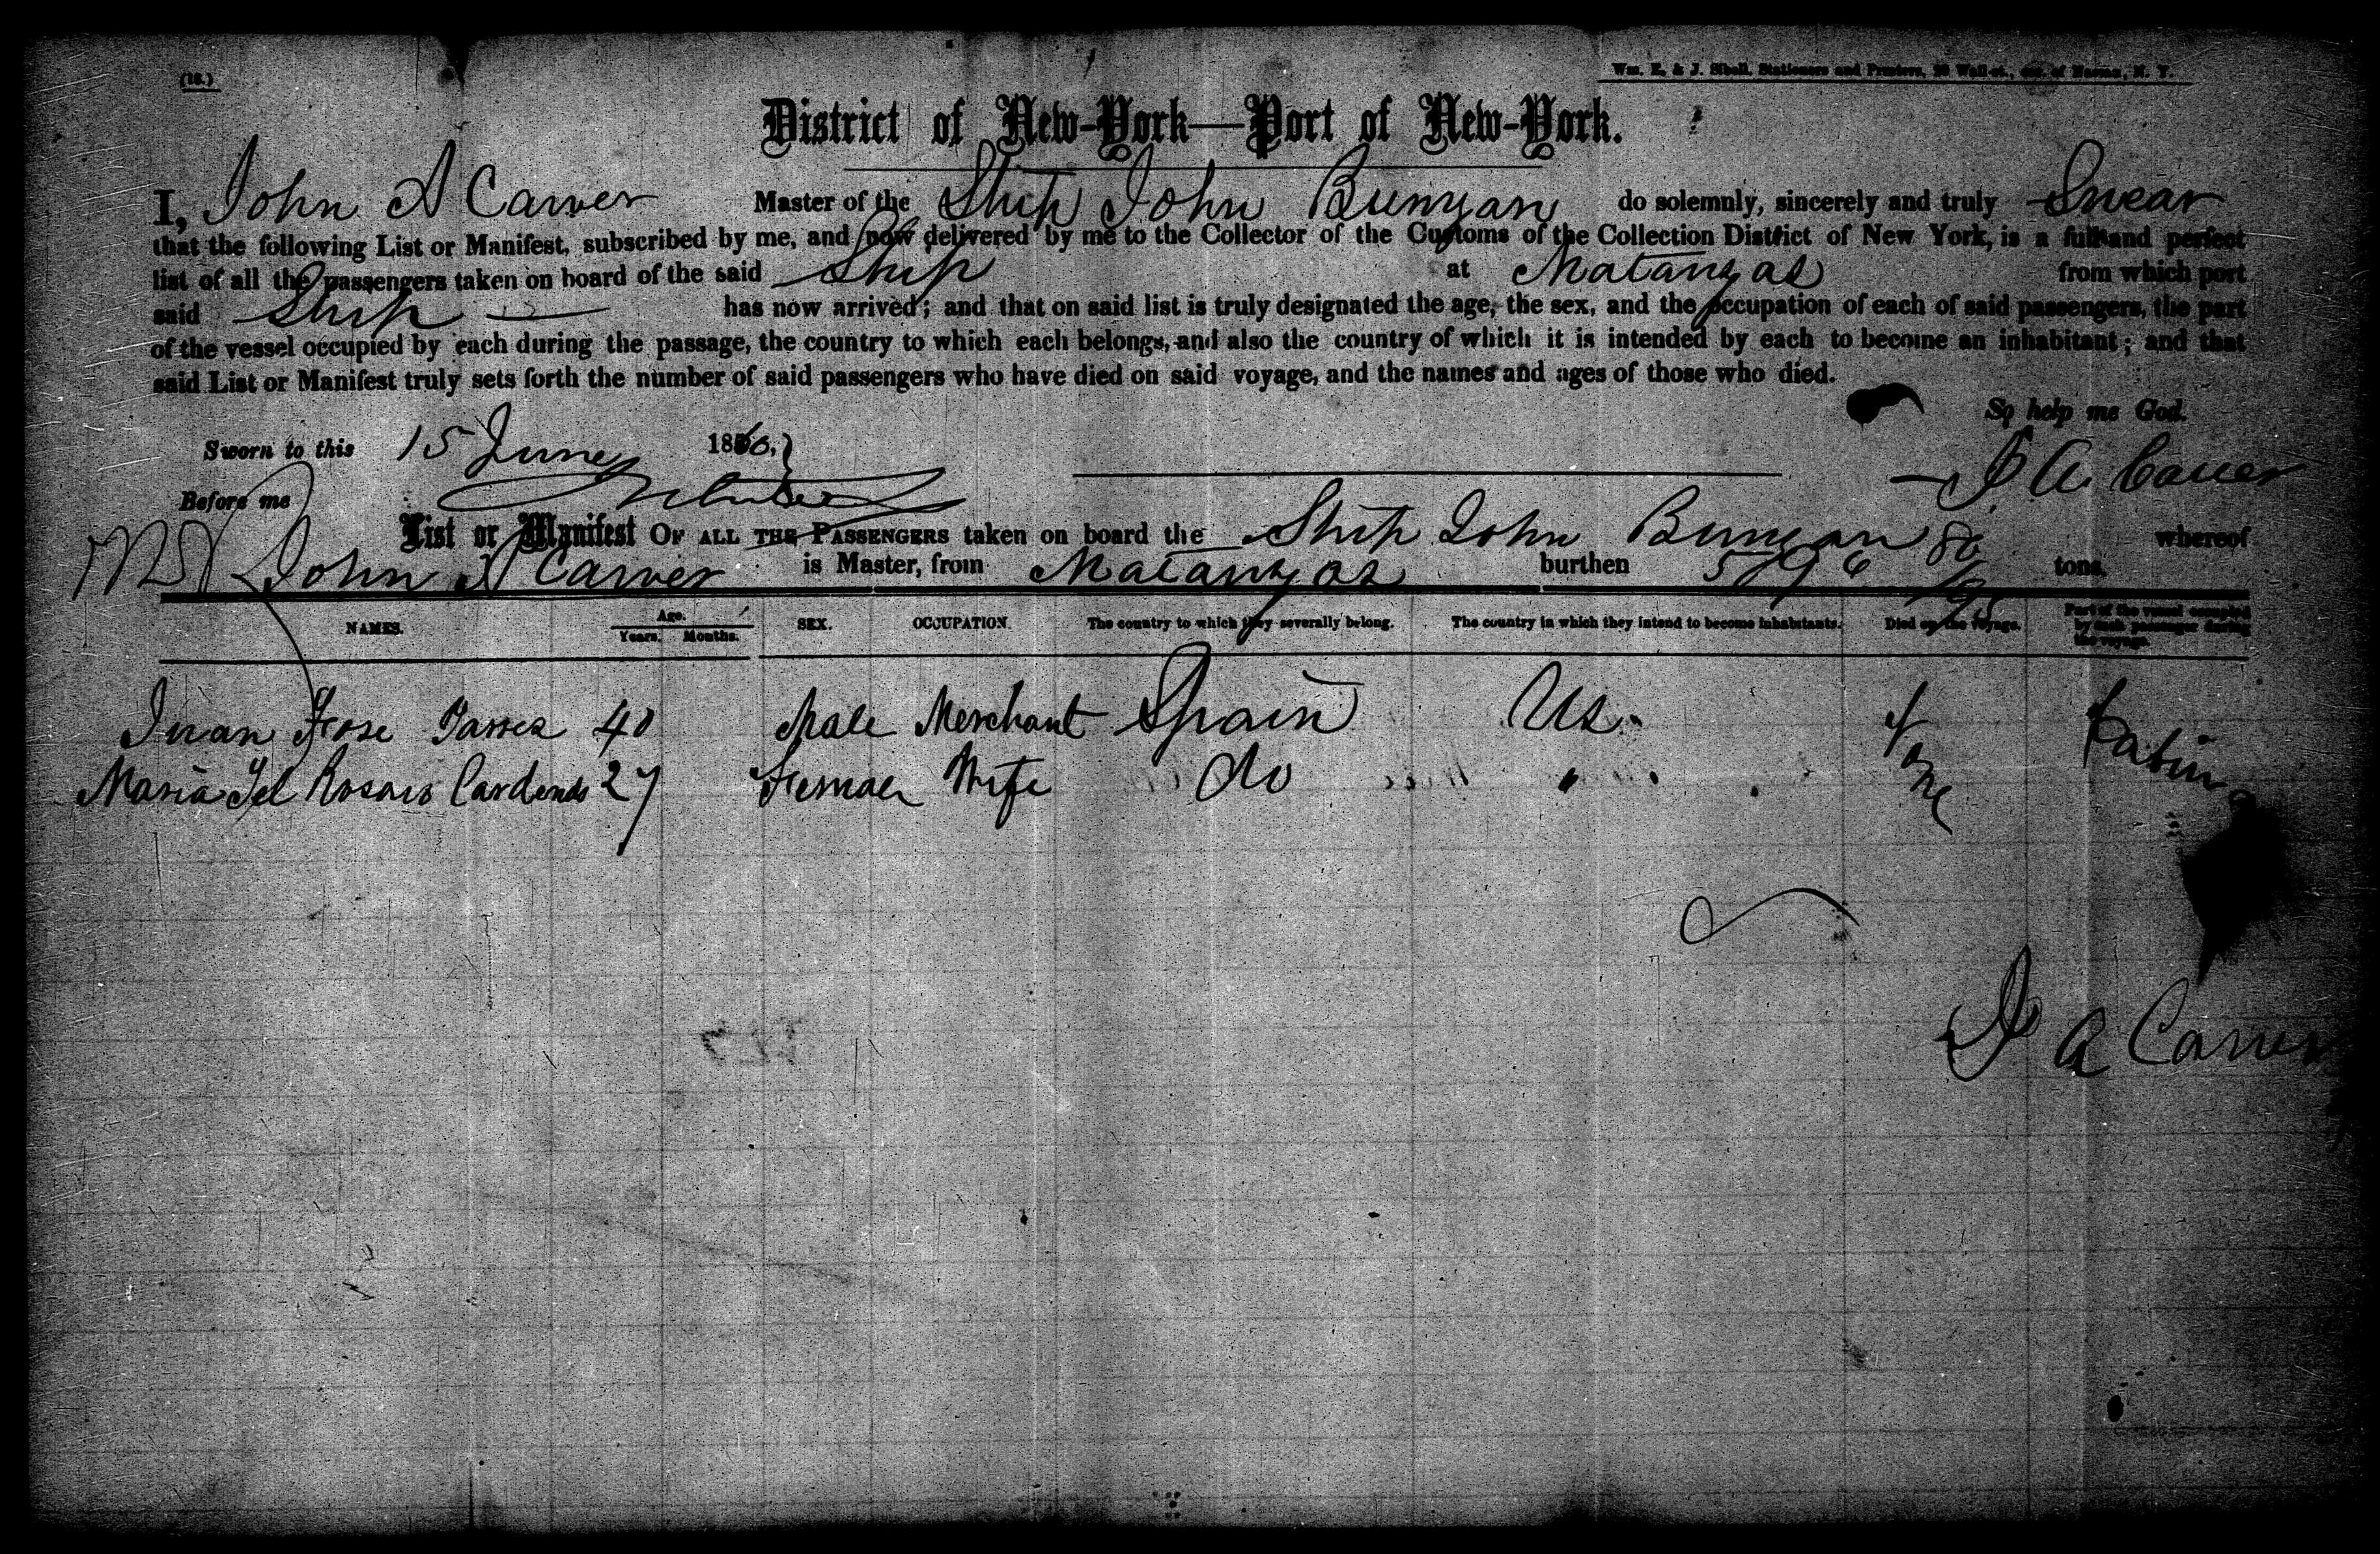 (18.)
Wm. E. & J. Sibell, Stationers and Printers, Wall-st., cor. of Nassau, N. Y.
District of New-York—Port of New-York.
I, John A Carver Master of the Ship John Bunyan do solemnly, sincerely and truly Swear
that the following List or Manifest, subscribed by me, and now delivered by me to the Collector of the Customs of the Collection District of New York, is a full and perfect
list of all the passengers taken on board of the said Ship at Matanzas from which port
said Ship has now arrived; and that on said list is truly designated the age, the sex, and the occupation of each of said passengers, the part
of the vessel occupied by each during the passage, the country to which each belongs, and also the country of which it is intended by each to become an inhabitant; and that
said List or Manifest truly sets forth the number of said passengers who have died on said voyage, and the names and ages of those who died.
So help me God.
Sworn to this 15 June 1860,
J A. Carver
Before me
List or Manifest OF ALL THE PASSENGERS taken on board the Ship John Bunyan whereof
John A Carver is Master, from Matanzas burthen 596 80/95 tons.
NAMES. Age. Years. Months. SEX. OCCUPATION. The country to which they severally belong. The country in which they intend to become inhabitants. Died on the voyage. Part of the vessel occupied by each passenger during the voyage.
Juan Jose 40 Male Merchant Spain US. None Cabin
Maria del Rosario Cardenas 27 Female Wife do "
J A Carver